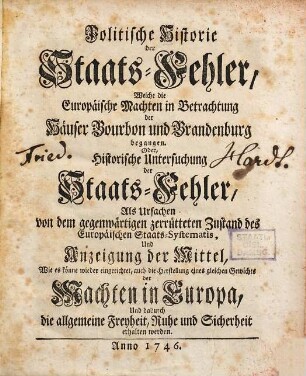 Politische Historie
der
Staats-Fehler,
Welche die
Europäische Machten in Betrachtung
der
Häuser Bourbon und Brandenburg
begangen.
Oder,
Historische Untersuchung
der
Staats-Fehler,
Als Ursachen
von dem gegenwärtigen zerrütteten Zustand des
Europäischen Staats-Systematis,
Und
Anzeigung der Mittel,
Wie es könne wieder eingerichtet, auch die Herstellung eines gleichen Gewichts
der
Machten in Europa,
Und dadurch
die allgemeine Freyheit, Ruhe und Sicherheit
erhalten werden.
Anno 1746.
Fried.